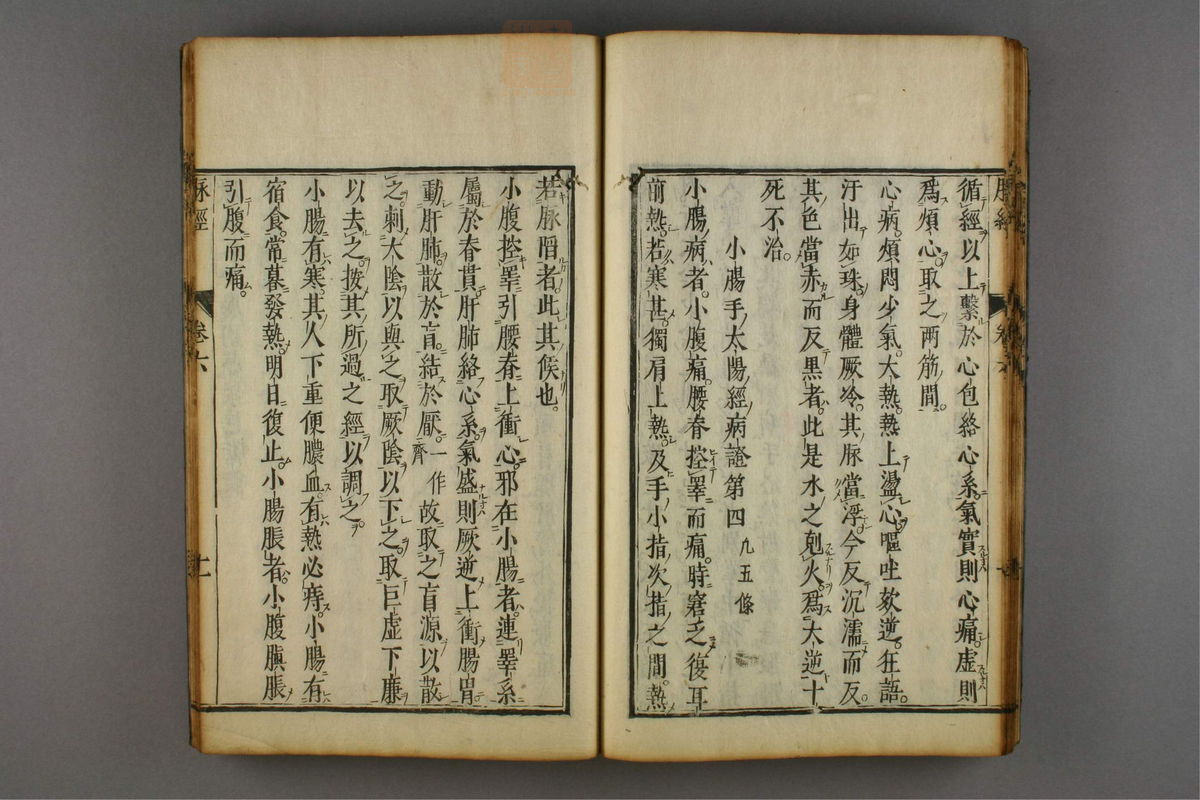 循經以上繫於心包絡心系氣實則心痛虛則
爲煩心取之兩筋間
心病煩悶少氣大熱熱上盪心嘔吐欬逆狂語
汗出如珠身體厥冷其脉當浮今反沉濡而反
其色當赤而反黑者此是水之剋火爲大逆十
死不治
小腸手太陽經病證第四 凡五條
小腸病者小腹痛腰脊控睾而痛時窘之復耳
前熱若寒甚獨肩上熱及手小指次指之間熱
若脉陷者此其候也
小腹控睾引腰脊上衝心邪在小腸者連睾系
屬於脊貫肝肺絡心系氣盛則厥逆上衝腸胃
動肝肺散於肓結於厭一作齊故取之肓源以散
之刺太陰以與之取厥陰以下之取巨虛下廉
以去之按其所過之經以調之
小腸有寒其人下重便膿血有熱必痔小腸有
宿食常暮發熱明日復止小腸脹者小腹䐜脹
引腹而痛
脉經
卷六